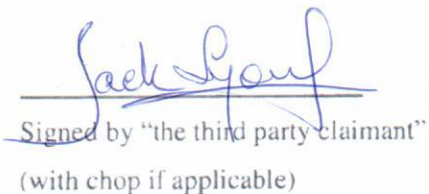 Jack
Signed by “the third party claimant”
(with chop if applicable)